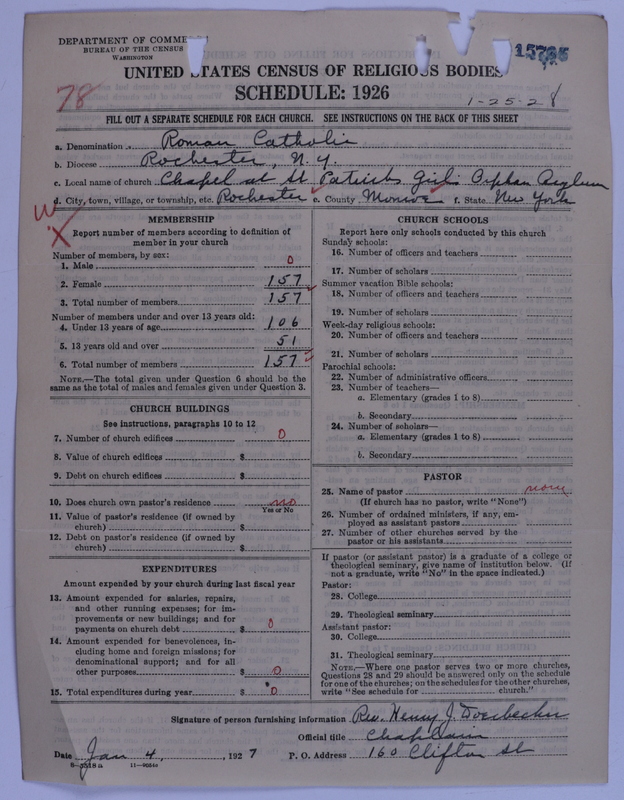 DEPARTMENT OF COMMERCE
BUREAU OF THE CENSUS
WASHINGTON
15765
UNITED STATES CENSUS OF RELIGIOUS BODIES
SCHEDULE: 1926
78
1-25-28
FILL OUT A SEPARATE SCHEDULE FOR EACH CHURCH. SEE INSTRUCTIONS ON THE BACK OF THIS SHEET
a. Denomination Roman Catholic
b. Diocese Rochester, N.Y.
c. Local name of church Chapel at St Patricks Girls Orphan Asylum
d. City, town, village, or township, etc. Rochester e. County Monroe f. State New York
MEMBERSHIP
Report number of members according to definition of
member in your church
Number of members, by sex:
1. Male 0
2. Female 157
3. Total number of members 157
Number of members under and over 13 years old:
4. Under 13 years of age 106
5. 13 years old and over 51
6. Total number of members 157
NOTE.—The total given under Question 6 should be the
same as the total of males and females given under Question 3.
CHURCH BUILDINGS
See instructions, paragraphs 10 to 12
7. Number of church edifices 0
8. Value of church edifices $
9. Debt on church edifices $
10. Does church own pastor's residence no
Yes or No
11. Value of pastor's residence (if owned by
church) $
12. Debt on pastor's residence (if owned by
church) $
EXPENDITURES
Amount expended by your church during last fiscal year
13. Amount expended for salaries, repairs,
and other running expenses; for im-
provements or new buildings; and for
payments on church debt $ 0
14. Amount expended for benevolences, in-
cluding home and foreign missions; for
denominational support; and for all
other purposes $ 0
15. Total expenditures during year $ 0
CHURCH SCHOOLS
Report here only schools conducted by this church
Sunday schools:
16. Number of officers and teachers
17. Number of scholars
Summer vacation Bible schools:
18. Number of officers and teachers
19. Number of scholars
Week-day religious schools:
20. Number of officers and teachers
21. Number of scholars
Parochial schools:
22. Number of administrative officers
23. Number of teachers—
a. Elementary (grades 1 to 8)
b. Secondary
24. Number of scholars—
a. Elementary (grades 1 to 8)
b. Secondary
PASTOR
25. Name of pastor none
(If church has no pastor, write "None")
26. Number of ordained ministers, if any, em-
ployed as assistant pastors
27. Number of other churches served by the
pastor or his assistants
If pastor (or assistant pastor) is a graduate of a college or
theological seminary, give name of institution below. (If
not a graduate, write "No" in the space indicated.)
Pastor:
28. College
29. Theological seminary
Assistant pastor:
30. College
31. Theological seminary
NOTE.—Where one pastor serves two or more churches,
Questions 28 and 29 should be answered only on the schedule
for one of the churches; on the schedules for the other churches,
write "See schedule for church."
Signature of person furnishing information Rev. Henry J.
Official title Chaplain
Date Jan 4, 1927 P. O. Address 160 Clifton St